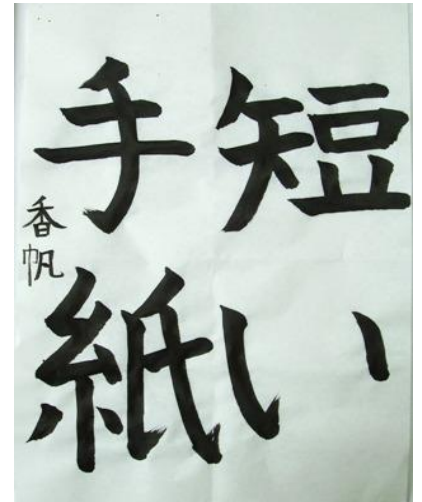 短い
手紙
香帆